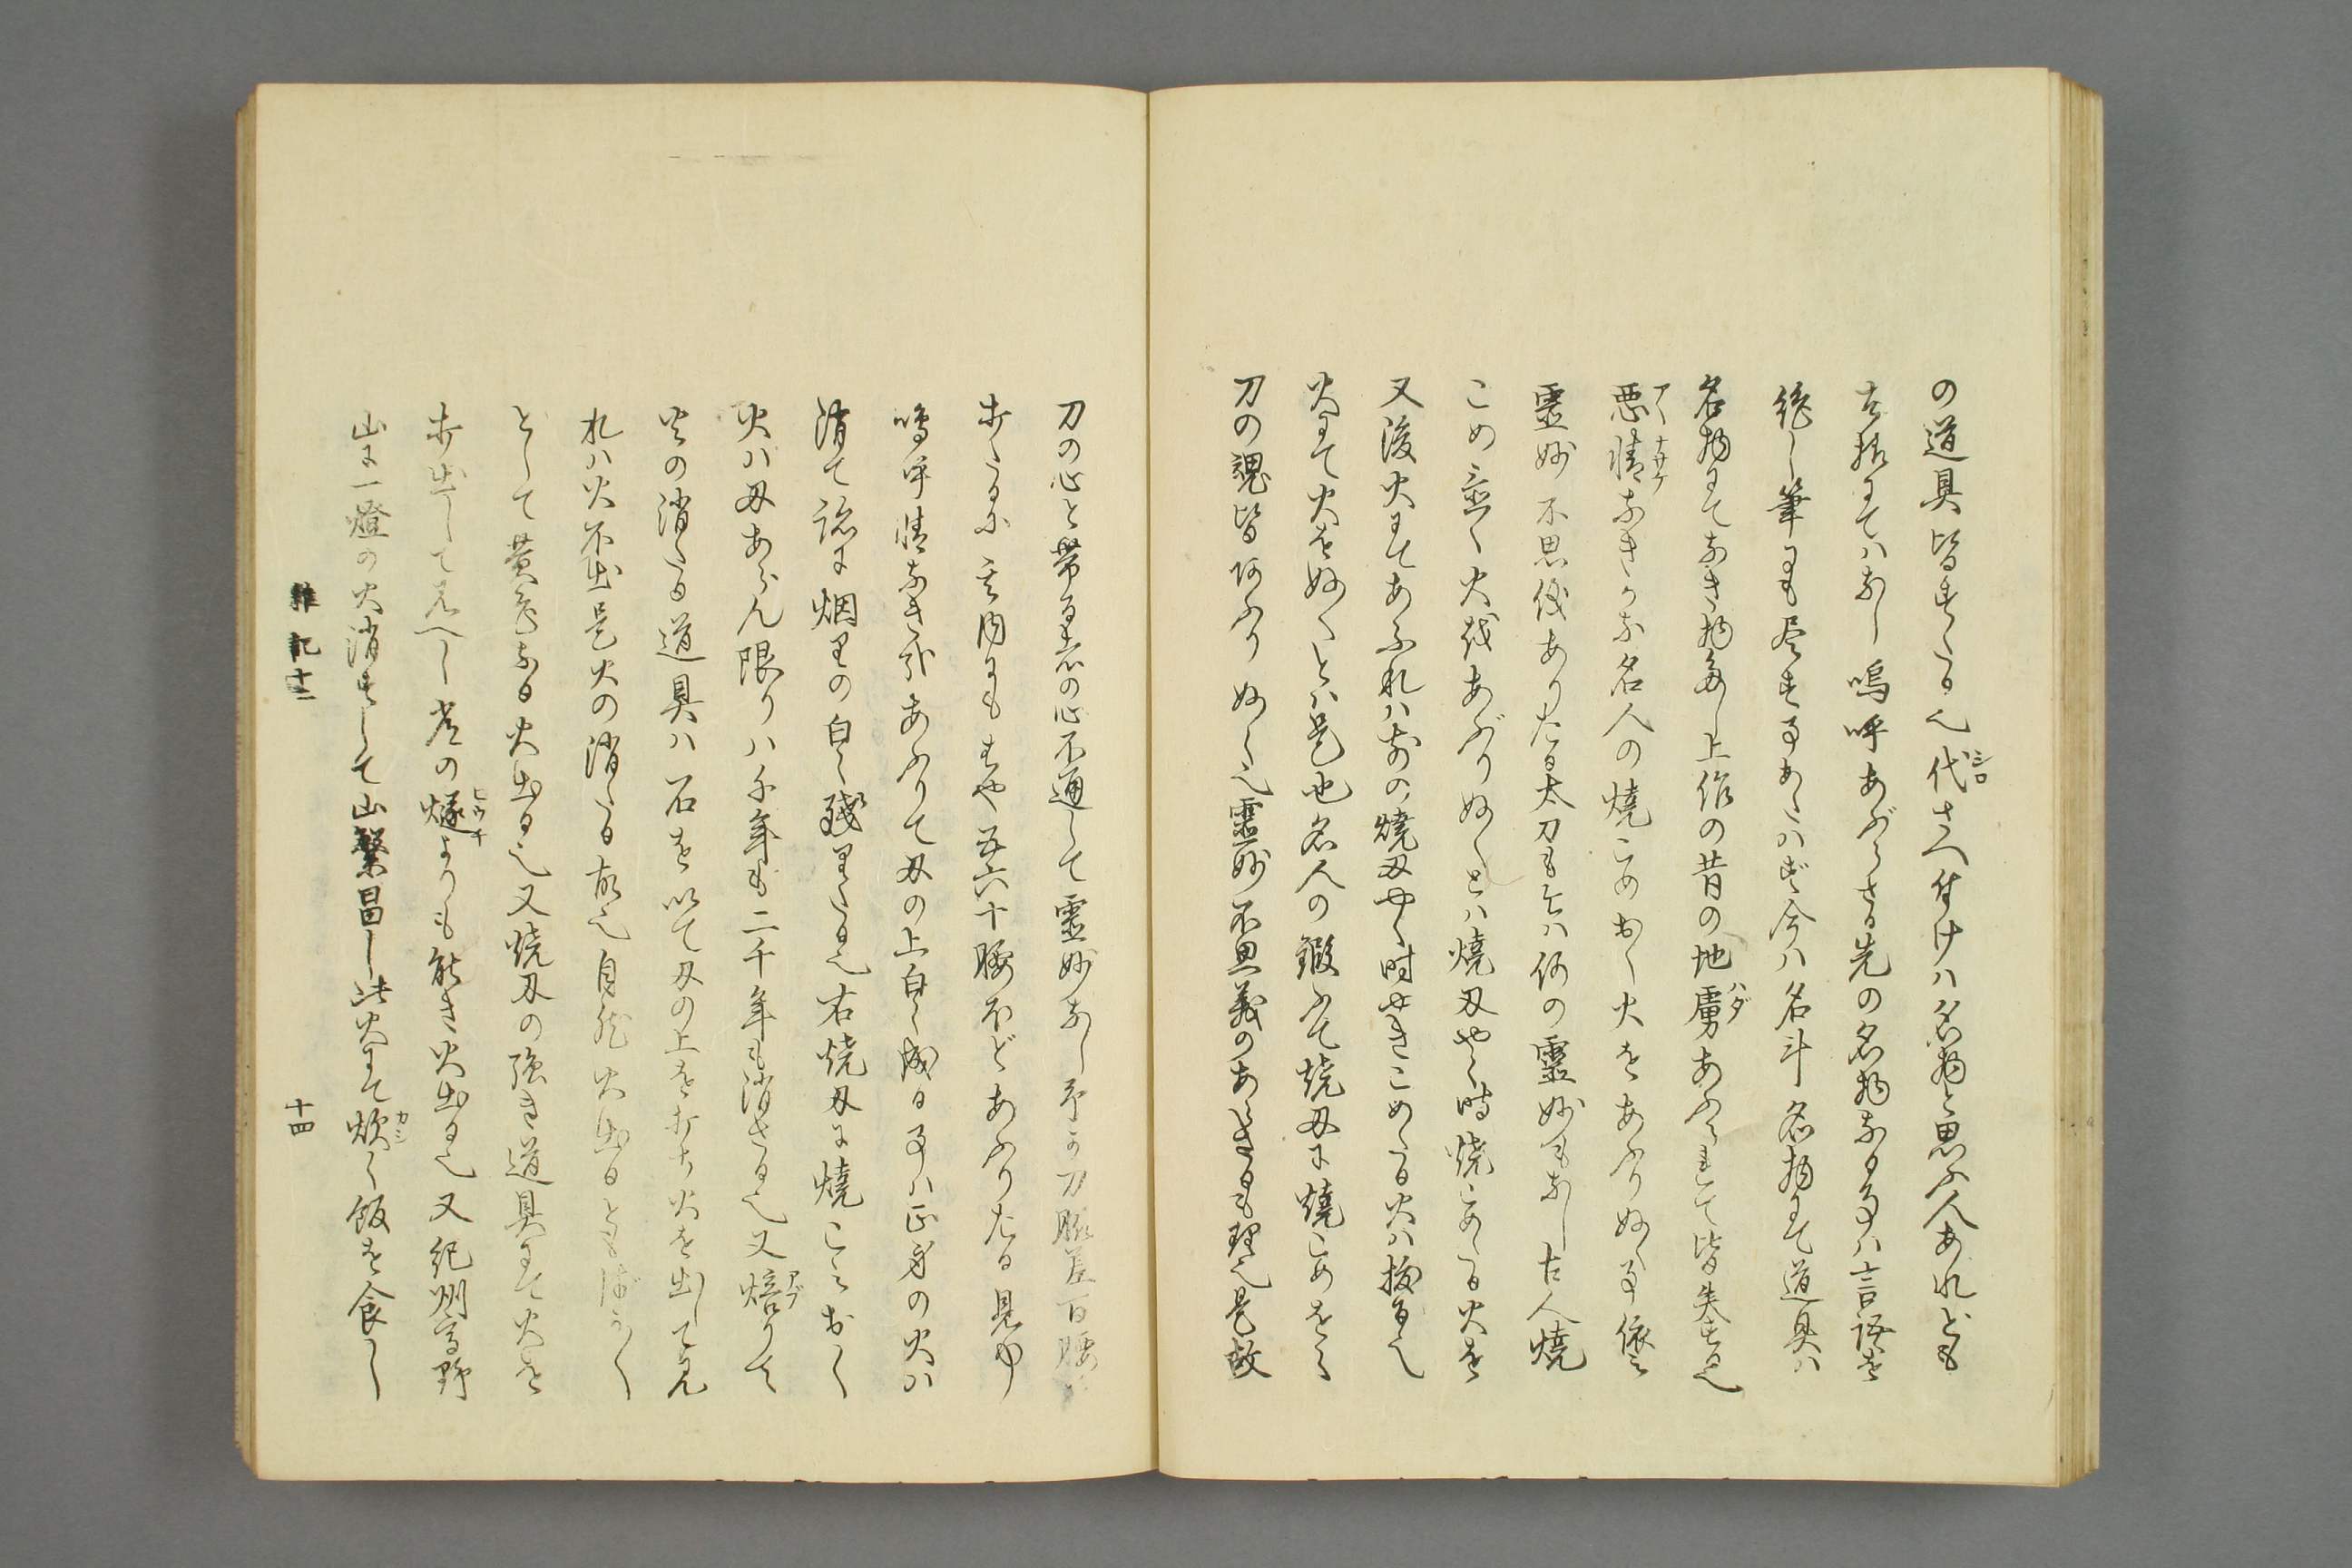 の道具皆すたる也代さへ付けハ名物と思ふ人あれども
シロ
古格にてハなし嗚呼あぶらさる先の名物なる事ハ言語を
絶し筆にも尽す事あたハず今ハ名斗名物にて道具ハ
名物にてなき物多し上作の昔の地膚あふられて皆失する也
ハダ
悪情なきかな名人の焼こめおく火をあふりぬく事依之
アヽナサケ
霊妙不思儀ありたる太刀も今ハ何の霊妙もなし古人焼
こめ置く火我あぶりぬくとハ焼刃やく時焼こめたる火を
又後火にてあふれハ前の焼刃やく時やきこめたる火ハ抜る也
火にて火をぬくとハ是也名人の鍛ふて焼刃に焼こめをく
刀の魂皆あふりぬく也霊妙不思義のあらざるも理也是故
刀の心と帯る者の心不通して霊妙なし予か刀脇差百腰
打たるに其内にもはや五六十腰ほどあふりたる見ゆ
嗚呼情なき哉あふりて刃の上白く成る事ハ正身の火ハ
消て跡に烟りの白く残りたる也右焼刃に焼こミおく
火ハ刃あらん限りハ千年も二千年も消さる也又焙りて
アブ
火の消たる道具ハ石を以て刃の上を打ち火を出して見
れハ火不出是火の消たる故也自然火出るとも ぼかく
として黄色なる火出る也又焼刃の強き道具にて火を
打出して見へし常の燧よりも能き火出る也又紀州高野
ヒウチ
山に一燈の火消ずして山繁昌し此火にて炊く飯を食し
カシ
雑記十二
十四